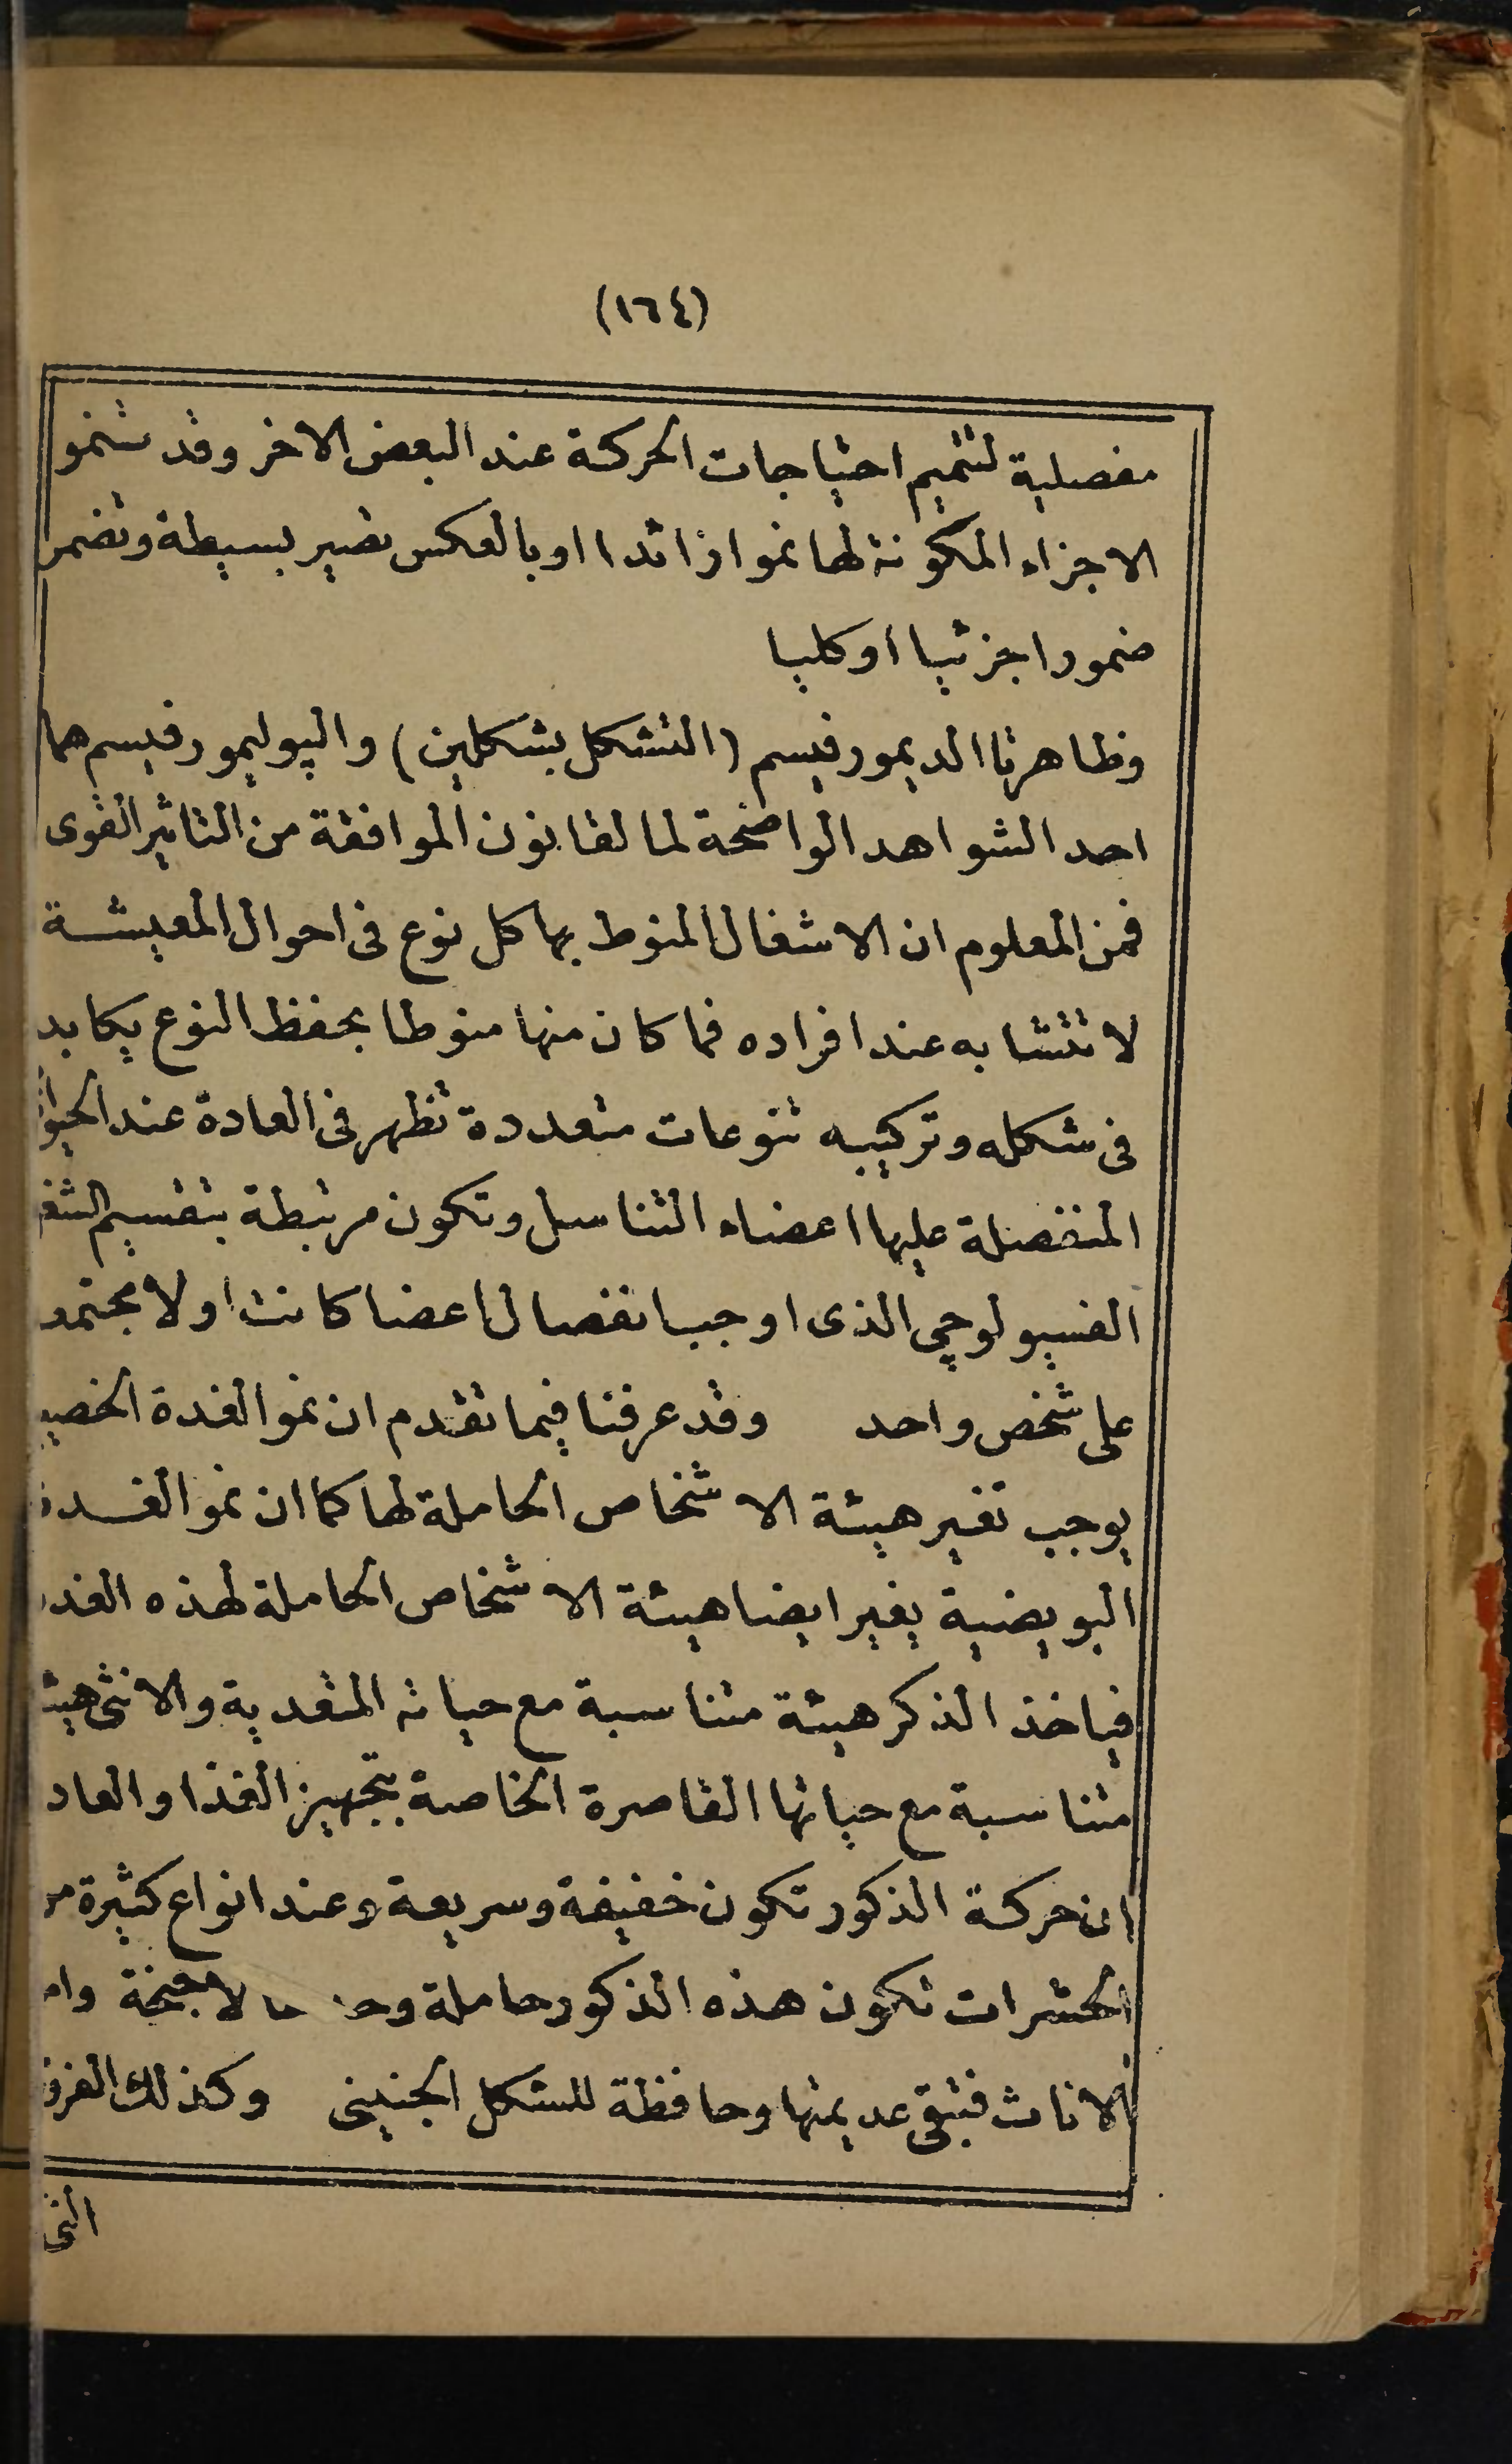 (١٦٤)
مفصلية لتتميم احتياجات الحركة عند البعض الاخر وقد تنمو
الاجزاء المكونة لها نموا زائدا او بالعكس تصير بسيطة وتضمر
ضمورا جزئيا او كليا
وظاهرتا الديمورفيسم (التشكل بشكلين) والپوليمورفيسم هما
احد الشواهد الواضحة لما لقانون الموافقة من التاثير القوى
فمن المعلوم ان الاشغال المنوط بها كل نوع فى احوال المعيشة
لا تتشابه عند افراده فما كان منها منوطا بحفظ النوع يكابد
فى شكله وتركيبه تنوعات متعددة تظهر فى العادة عند
المنفصلة عليها اعضاء التناسل وتكون مرتبطة بتقسيم
الفسيولوجى الذى اوجب انفصال اعضا كانت اولا
على شخص واحد وقد عرفنا فيما تقدم ان نمو الغدة
يوجب تغير هيئة الاشخاص الحاملة لها كما ان نمو
البويضية يغير ايضا هيئة الاشخاص الحاملة لهذه
فياخذ الذكر هيئة متناسبة مع حياته المتعدية والانثى
متناسبة مع حياتها القاصرة الخاصة بتجهيز الغذا
ان حركة الذكور تكون خفيفة وسريعة وعند انواع كثيرة
الحشرات تكون هذه الذكور حاملة
الاناث فتبقى عديمتها وحافظة للشكل الجنينى وكذلك